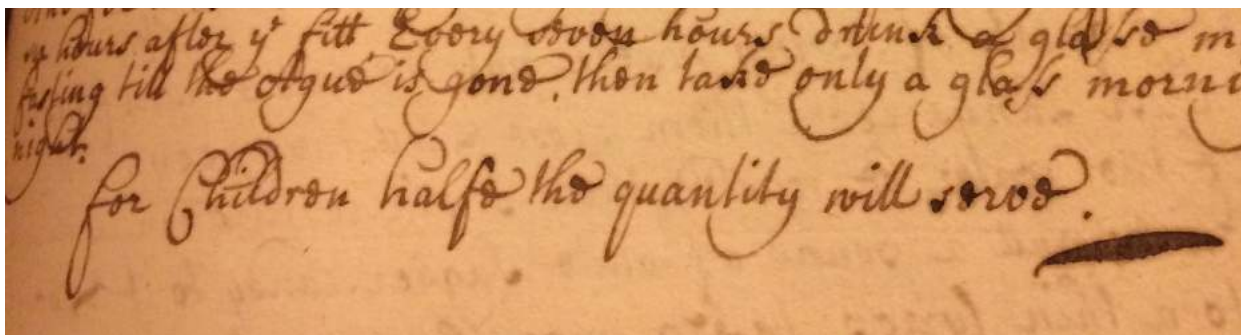 hours after yͤ fitt, Every seven hours drink a glasse
fasting till the Ague is gone, then take only a glass
night.
for Children halfe the quantity will serve.